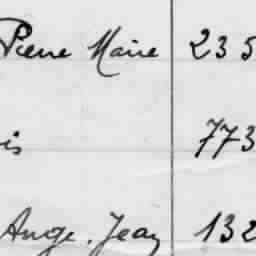 Pierre Marie 235
is 773
Ange. Jean 132